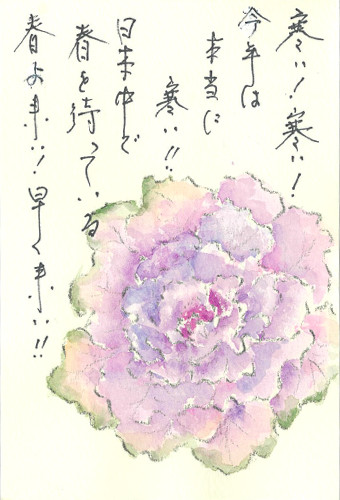 寒い!寒い!
今年は
本当に
寒い!!
日本中で
春を待っている
春よ来い!早く来い!!